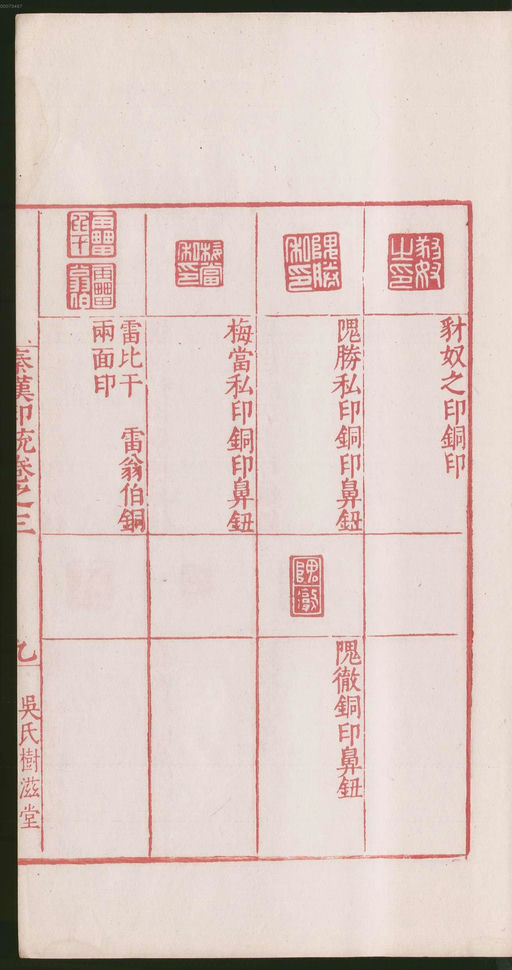 豺奴之印銅印
隗勝私印銅印鼻鈕
隗徹銅印鼻鈕
梅當私印銅印鼻鈕
雷比干 雷翁伯銅
兩面印
秦漢印統卷之三
九
吳氏樹滋堂
00073467